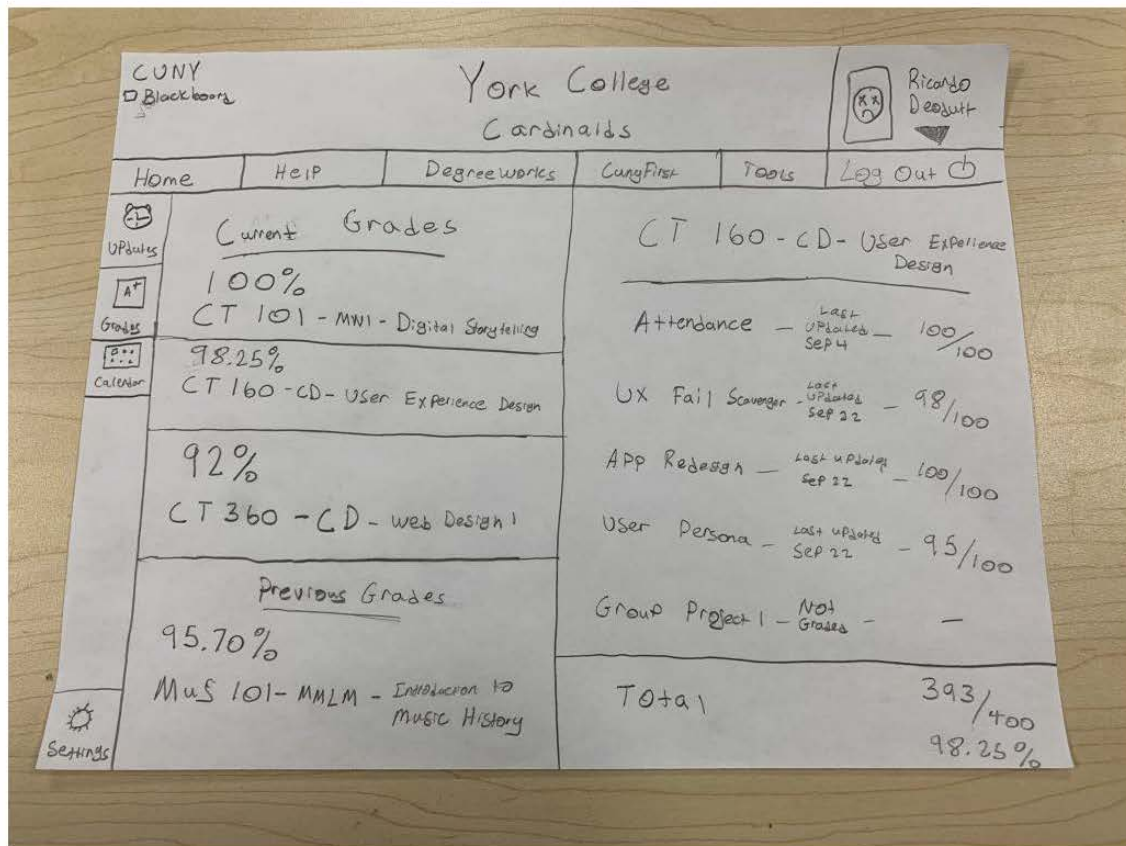 CUNY
Blackboard
York College
Cardinalds
Ricardo
Deodutt
Home
Help
Degreeworks
CunyFirst
Tools
Log Out
Updates
A+
Grades
Calendar
Settings
Current Grades
100%
CT 101 - MW1 - Digital Storytelling
98.25%
CT 160 - CD - User Experience Design
92%
CT 360 - CD - Web Design 1
Previous Grades
95.70%
MUS 101 - MMLM - Introduction to
Music History
CT 160 - CD - User Experience
Design
Attendance - Last
Updated
Sep 4 - 100/100
UX Fail Scavenger - Last
Updated
Sep 22 - 98/100
App Redesign - Last updated
Sep 22 - 100/100
User Persona - Last updated
Sep 22 - 95/100
Group Project 1 - Not
Graded - -
Total
393/400
98.25%